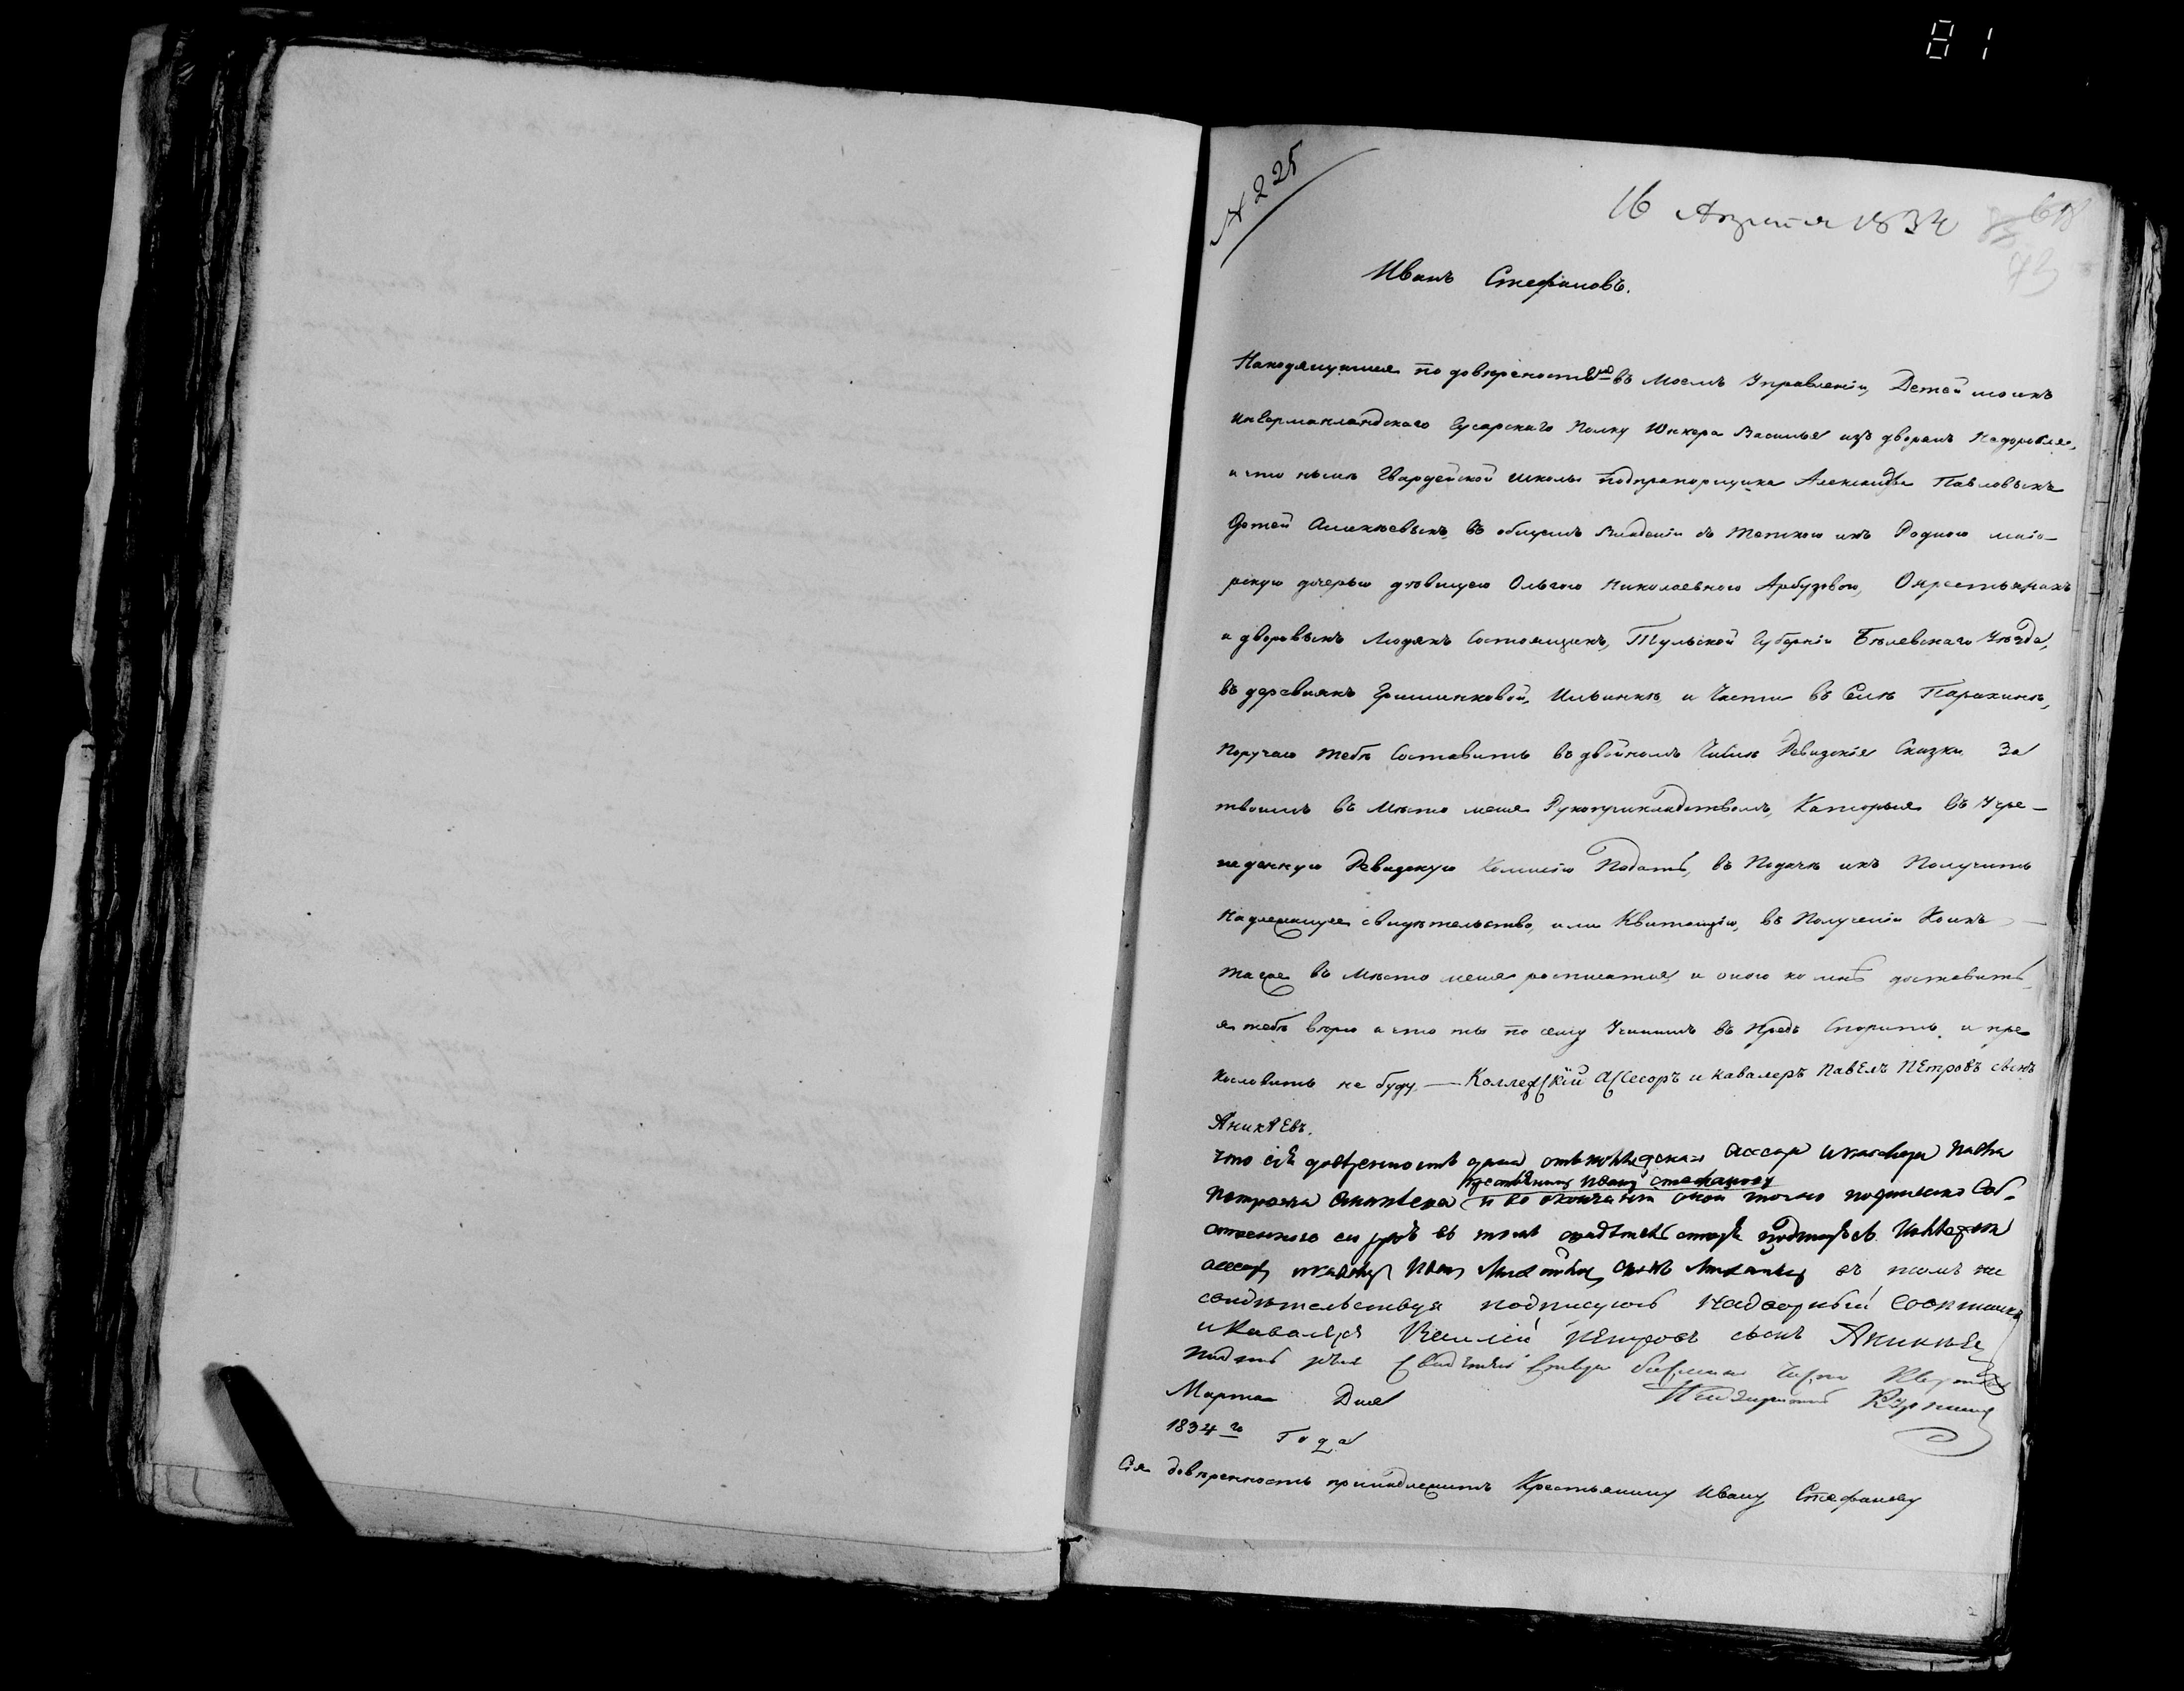 81
№ 225
16 Апреля 1834
68
73
Иванъ Стефановъ.
Находящимся по довѣреностямъ въ моемъ Управленіи, Детей моихъ
Ингерманландскаго Гусарскаго Полку Юнкера Василья изъ дворянъ
Гвардейской школы подпрапорщика Александра Павловыхъ
Детей Аникѣевыхъ, въ общемъ владеніи съ теткою ихъ Родною маіо-
рскую дочерью дѣвицею Ольгою Николаевною Арбузовою, О крестьянахъ
и дворовыхъ людяхъ Состоящихъ, Тульской Губерніи Бѣлевскаго Уѣзда,
въ деревняхъ Гришинковой, Ильинкѣ, и Части въ Селѣ Парахинѣ,
Поручаю тебѣ Составить въ двойномъ Числѣ Ревизскія Сказки За
твоимъ въ Мѣсто меня Рукоприкладствомъ, Каторыя въ Учре-
жденную Ревизскую Комисію Подать, въ Подачѣ ихъ Получить
Надлежащее свидѣтельство, или Квитанцію, въ Полученіи Коихъ
также въ Мѣсто меня росписатца, и оного ко мнѣ доставить,
я тебѣ вѣрю и что ты по сему Учинишъ въ Предь Спорить и пре
кословить не буду — Коллежскій Ассесоръ и кавалеръ Павелъ Петровъ сынъ
Аникѣевъ.
Что сія довѣренность дана отъ коллежскаго Асесора и кавалера Павла
крестьянину Ивану Стефанову
Петрова Аникѣева и во окончаніи оной точно подписано Соб-
ственною его рукою въ томъ свидѣтельствую подписуюсь Коллежскій
асесор и кавалер Иван сынъ въ томъ же
свидѣтельствуя подписуюсь Надворный Советникъ
и Кавалеръ Василій Петровъ сынъ Аникѣев
Марта Дня
1834го Года
Сія довѣренность принадлежитъ Крестьянину Ивану Стефанову